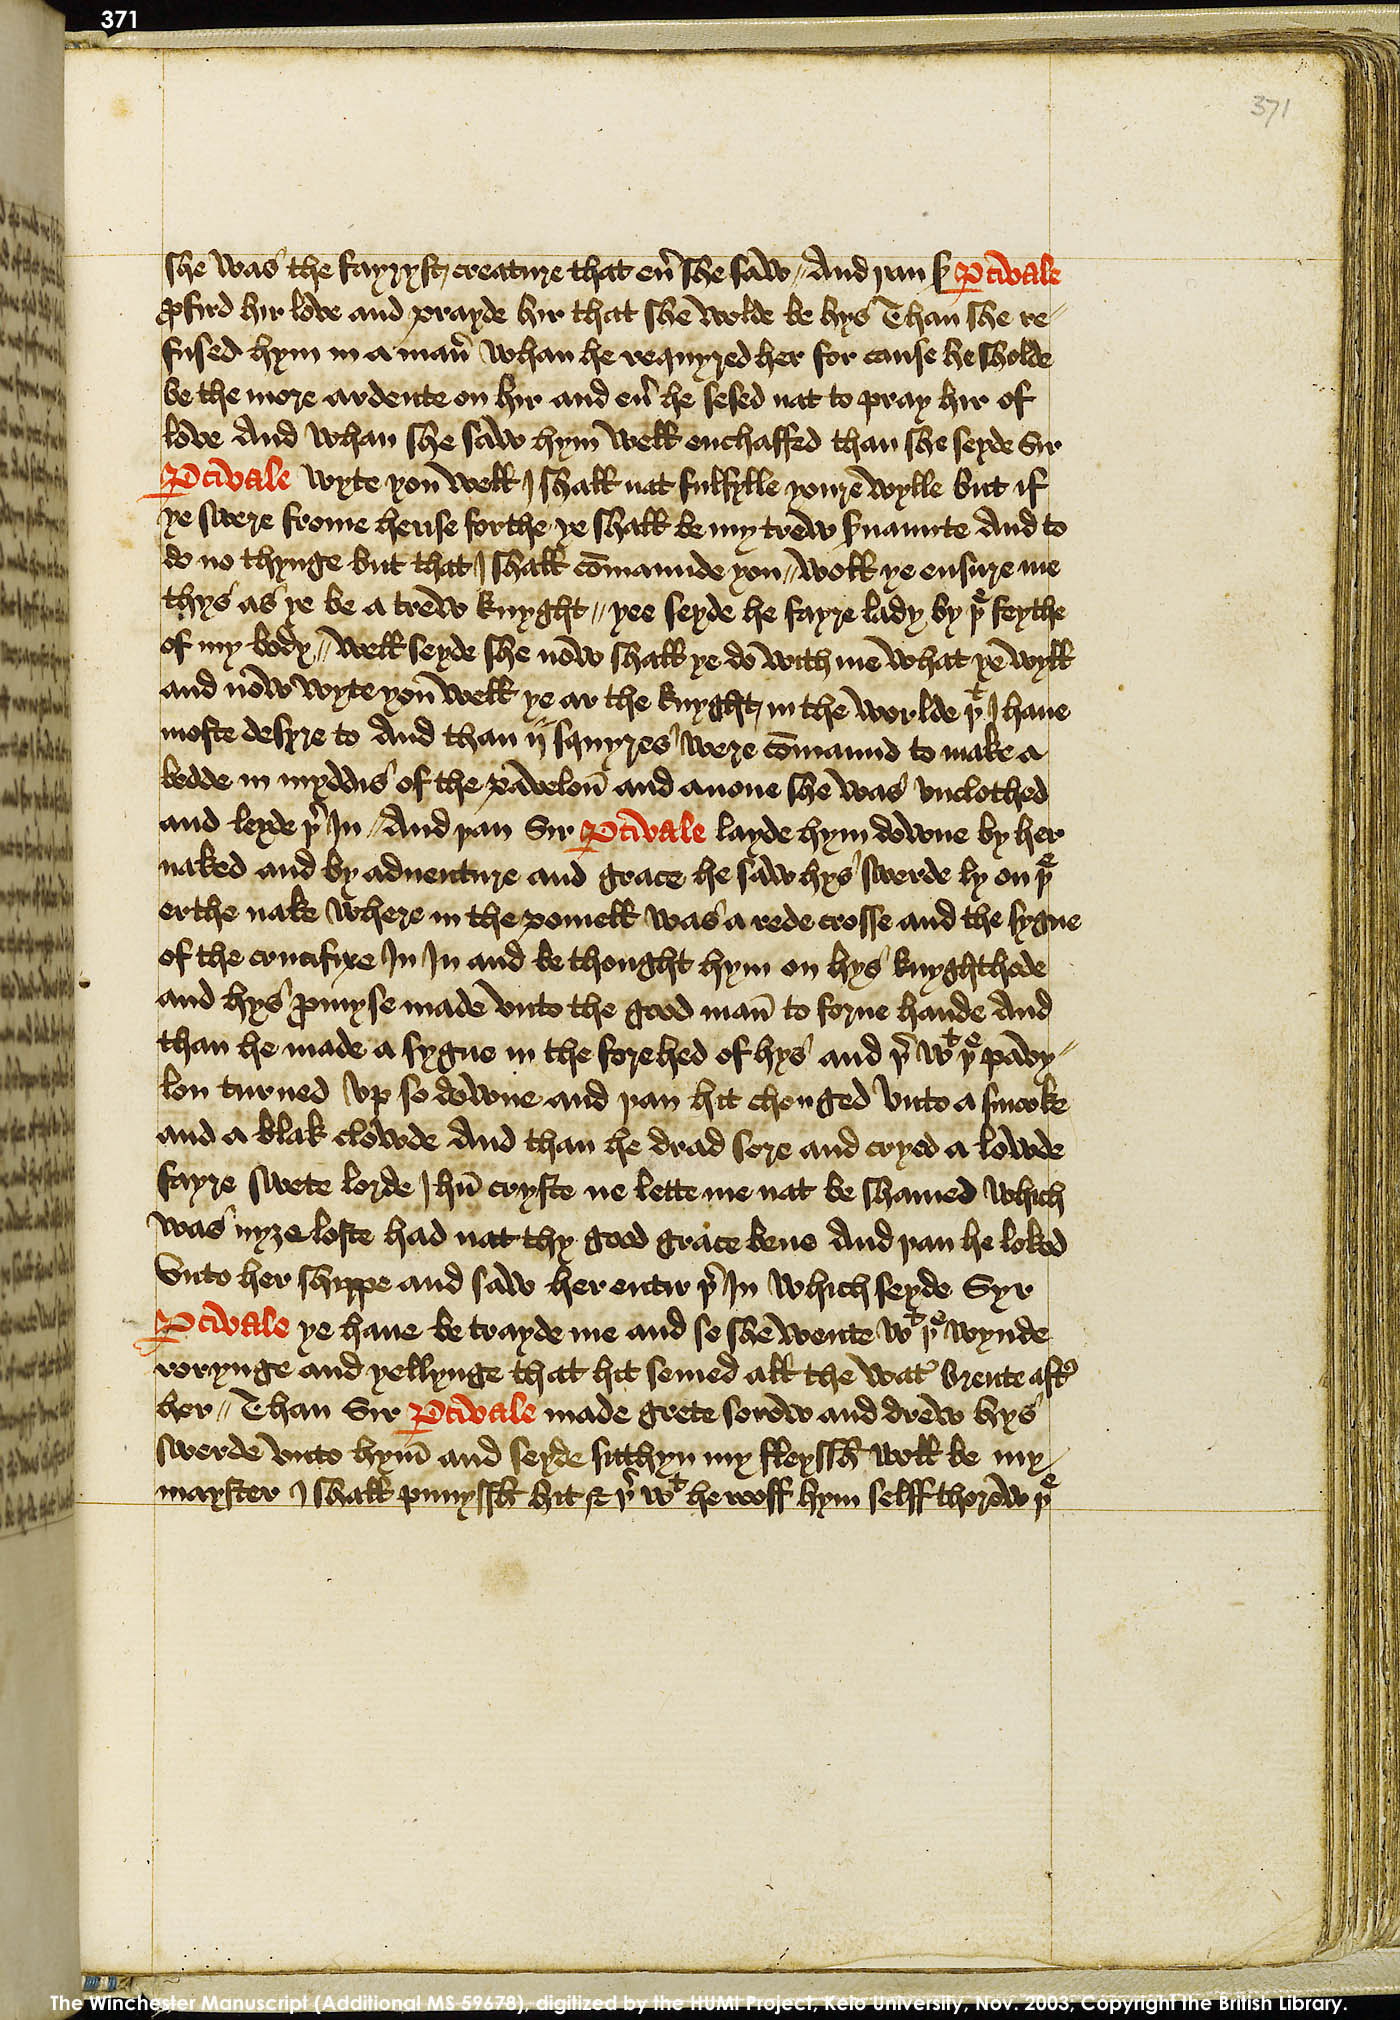 371
371
she was the fayryst creature that eũ she saw // And þan ẜ Ꝑcivale
ꝓfird hir love and prayde hir that she wolde be hys Than she re//
fused hym in a mañ whan he requyred her for cause he sholde
be the more ardente on hir and eũ he sesed nat to pray hir of
love And whan she saw hym well enchaffed than she seyde Sir
Ꝑcivale wyte you well I shall nat fulfylle youre wylle but if
ye swere frome hense forthe ye shall be my trew ẜuaunte And to
do no thynge but that I shall cōmaunde you // Woll ye ensure me
thys as ye be a trew knyght // yee seyde he fayre lady by þͤ feythe
of my body // Well seyde she now shall ye do with me what ye wyll
and now wyte you well ye ar the knyght in the worlde þᵗ I haue
moste desyre to And than ij squyres were cōmaund to make a
bedde in myddis of the pavelon̄ and anone she was vnclothed
and leyde þ̉ In // And þan Sir Ꝑcivale layde hym downe by her
naked and by aduenture and grace he saw hys swerde ly on þͤ
erthe nake where in the pomell was a rede crosse and the sygne
of the crucifixe In In and be thought hym on hys knyghthode
and hys ꝓmyse made vnto the good man̄ to forne hande And
than he made a sygne in the forehed of hys and þ̉ wᵗ þͤ pavy//
lon turned vp so downe and þan hit chonged vnto a smooke
and a blak clowde And than he drad sore and cryed a lowde
fayre swete lorde Ihū cryste ne lette me nat be shamed which
was nyze loste had nat thy good grace bene And þan he loked
Vnto her shippe and saw her entir þ̉ In which seyde Syr
Ꝑcivale ye haue be trayde me and so she wente wᵗ þͤ wynde
rorynge and yellynge that hit semed all the wat̉ brente aft̉
her // Than Sir Ꝑcivale made grete sorow and drew hys
swerde vnto hym̄ and seyde sitthyn my fleyssh woll be my
mayster I shall punyssh hit & þ̉ wᵗ he rooff hym selff thorow þͤ
The Winchester Manuscript (Additional MS 59678), digitized by the HUMI Project, Keio University, Nov. 2003, Copyright the British Library.